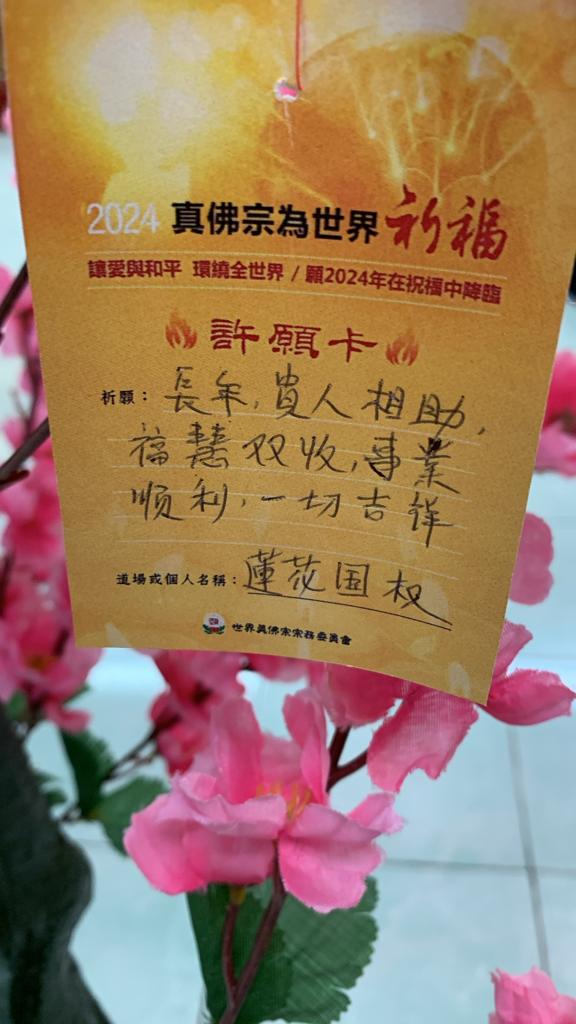 2024 真佛宗為世界祈福
讓愛與和平 環繞全世界 / 願2024年在祝福中降臨
許願卡
祈願：長年,貴人相助,
福慧双收,事業
順利,一切吉祥
道場或個人名稱：蓮花国权
世界真佛宗宗務委員會